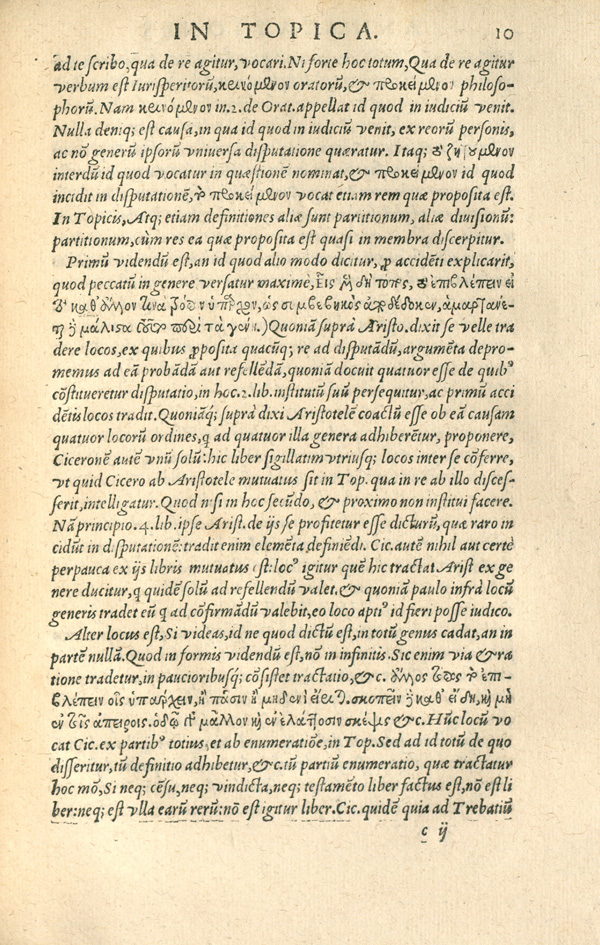 IN TOPICA. 10
ad te scribo, qua de re agitur, vocari. Ni forte hoc totum, Qua de re agitur
verbum est Iurisperitorū, κεινόμϟνον oratorū, & προκείμϟνον philoso-
phorū. Nam κεινόμϟνον in .2. de Orat. appellat id quod in iudiciū venit.
Nulla deniq; est causa, in qua id quod in iudiciū venit, ex reorū personis,
ac nō generū ipsorū vniversa disputatione quæratur. Itaq; ζητούμϟνον
interdū id quod vocatur in quæstionē nominat, & προκείμϟνον id quod
incidit in disputationē, προκείμϟνον vocat etiam rem quæ proposita est.
In Topicis, Atq; etiam definitiones aliæ sunt partitionum, aliæ divisionū:
partitionum, cùm res ea quæ proposita est quasi in membra discerpitur.
Primū videndū est, an id quod alio modo dicitur, ꝓ accidēti explicarit,
quod peccatū in genere versatur maxime, Εἷς δὴ τόπος, ἐπιβλέπειν εἰ
καθ' ἄλλον τινα τρόπον ὑπάρχον, ὡς συμβεβηκὸς ἀποδέδωκεν, ἁμαρτάνε-
ται μάλιστα τοῦτο περὶ τὰ γένη.) Quoniā suprà Aristo. dixit se velle tra
dere locos, ex quibus ꝓposita quacūq; re ad disputādū, argumēta depro-
memus ad eā probādā aut refellēdā, quoniā docuit quatuor esse de quibꝰ
cōstitueretur disputatio, in hoc .2. lib. institutū suū persequitur, ac primū acci
dētis locos tradit. Quoniāq; suprà dixi Aristotelē coactū esse ob eā causam
quatuor locorū ordines, q ad quatuor illa genera adhiberētur, proponere,
Ciceronē autē vnū solū: hic liber sigillatim vtriusq; locos inter se cōferre,
vt quid Cicero ab Aristotele mutuatus sit in Top. qua in re ab illo disces-
serit, intelligatur. Quod nisi in hoc secūdo, & proximo non institui facere.
Nā principio .4. lib. ipse Arist. de ijs se profitetur esse dicturū, quæ raro in
cidūt in disputationē: tradit enim elemēta definiēdi. Cic. autē nihil aut certè
perpauca ex ijs libris mutuatus est: locꝰ igitur quē hic tractat Arist ex ge
nere ducitur, q quidē solū ad refellendū valet, & quoniā paulo infrà locū
generis tradet eū q ad cōfirmādū valebit, eo loco aptiꝰ id fieri posse iudico.
Alter locus est, Si videas, id ne quod dictū est, in totū genus cadat, an in
partē nullā. Quod in formis videndū est, nō in infinitis. Sic enim via & ra
tione tradetur, in paucioribusq; cōsistet tractatio, &c. ἄλλος τόπος τὸ ἐπι-
βλέπειν οἷς ὑπάρχειν, ἢ πᾶσιν ἢ μηδενὶ εἴρηται. σκοπεῖν καθ' εἴδη, κ μὴ
ἐν τοῖς ἀπείροις. ὁδῷ μᾶλλον κ ἐν ἐλάττοσιν σκέψις &c. Hūc locū vo
cat Cic. ex partibꝰ totius, et ab enumeratiōe, in Top. Sed ad id totū de quo
disseritur, tū definitio adhibetur, &c. tū partiū enumeratio, quæ tractatur
hoc mō, Si neq; cēsu, neq; vindicta, neq; testamēto liber factus est, nō est li
ber: neq; est vlla earū rerū: nō est igitur liber. Cic. quidē quia ad Trebatiū
c ij